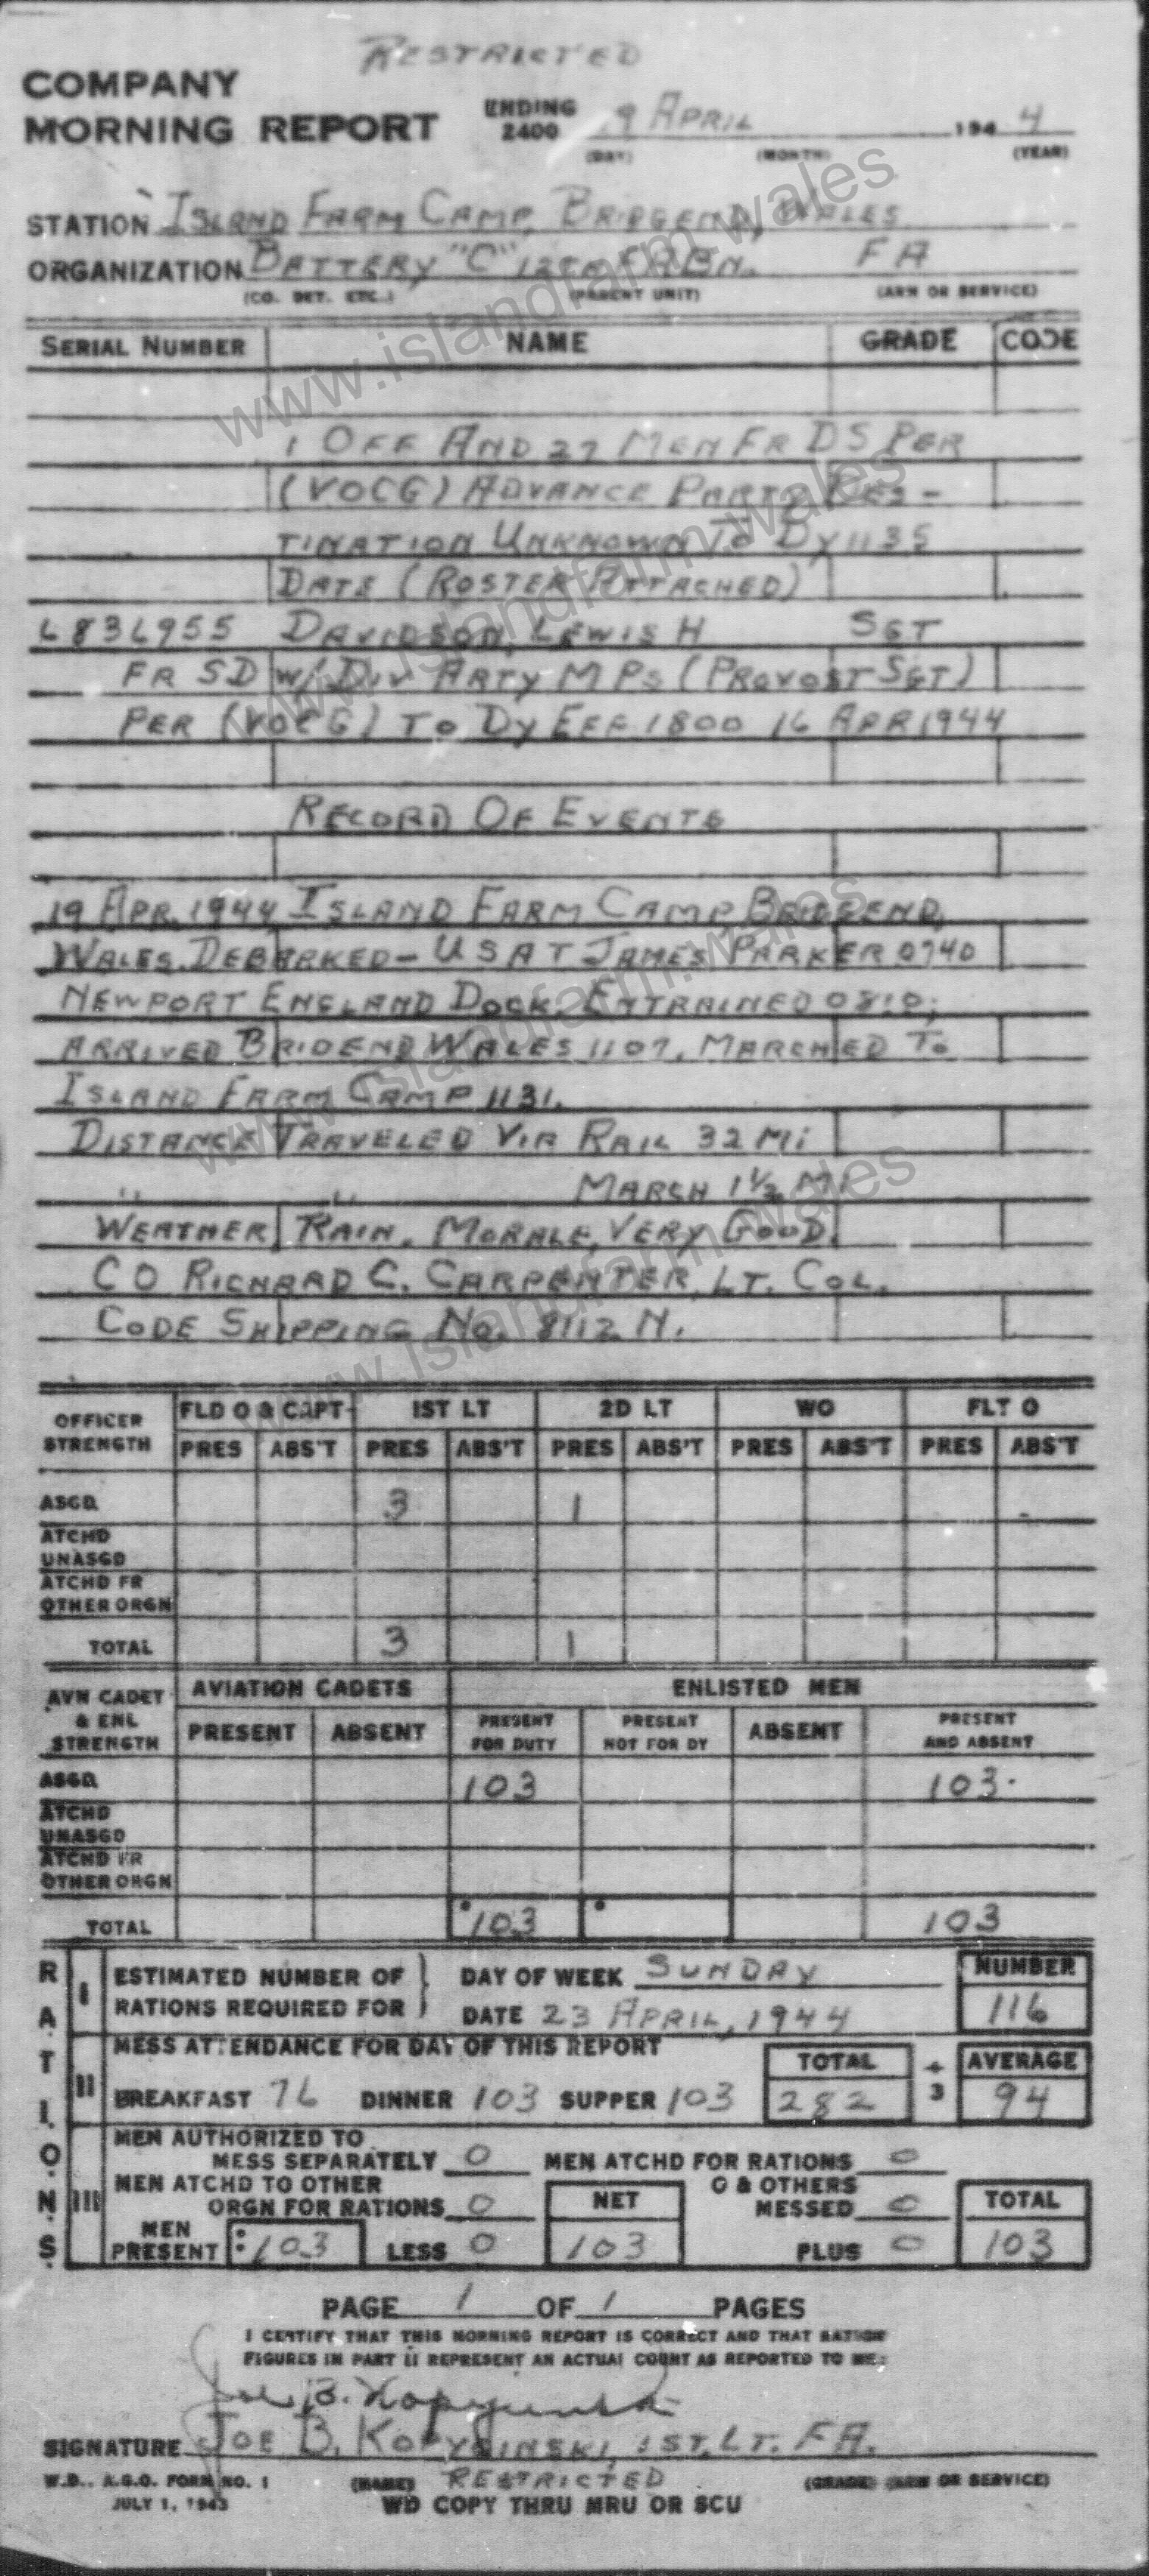 RESTRICTED
COMPANY
MORNING REPORT ENDING 2400 19 APRIL 1944
(DAY) (MONTH) (YEAR)
STATION ISLAND FARM CAMP, BRIDGEND, WALES
ORGANIZATION BATTERY "C" FA BN. FA
(CO. DET. ETC.) (PARENT UNIT) (ARM OR SERVICE)
SERIAL NUMBER NAME GRADE CODE
1 OFF AND 27 MEN FR DS PER
(VOCG) ADVANCE PARTY DES-
TINATION UNKNOWN TO DY 1135
DATE (ROSTER ATTACHED)
6836955 DAVIDSON, LEWIS H SGT
FR SD W/ DIV ARTY MPS (PROVOST SGT)
PER (VOCG) TO DY EFF 1800 16 APR 1944
RECORD OF EVENTS
19 APR. 1944, ISLAND FARM CAMP BRIDGEND,
WALES. DEBARKED- USAT JAMES PARKER 0740
NEWPORT ENGLAND DOCK. ENTRAINED 0810;
ARRIVED BRIDEND WALES 1107. MARCHED TO
ISLAND FARM CAMP 1131.
DISTANCE TRAVELED VIA RAIL 32 MI
" " MARCH 1 1/2 MI
WEATHER RAIN. MORALE, VERY GOOD.
CO RICHARD C. CARPENTER, LT. COL.
CODE SHIPPING No. 8112 N.
OFFICER STRENGTH FLD O & CAPT 1ST LT 2D LT WO FLT O
PRES ABS'T PRES ABS'T PRES ABS'T PRES ABS'T PRES ABS'T
ASGD 3 1
ATCHD UNASGD
ATCHD FR OTHER ORGN
TOTAL 3 1
AVN CADET & ENL STRENGTH AVIATION CADETS ENLISTED MEN
PRESENT ABSENT PRESENT FOR DUTY PRESENT NOT FOR DY ABSENT PRESENT AND ABSENT
ASGD 103 103
ATCHD UNASGD
ATCHD FR OTHER ORGN
TOTAL 103 103
RATIONS
I ESTIMATED NUMBER OF RATIONS REQUIRED FOR DAY OF WEEK SUNDAY NUMBER
DATE 23 APRIL, 1944 116
II MESS ATTENDANCE FOR DAY OF THIS REPORT TOTAL ÷ 3 AVERAGE
BREAKFAST 76 DINNER 103 SUPPER 103 282 94
III MEN AUTHORIZED TO
MESS SEPARATELY 0 MEN ATCHD FOR RATIONS 0
MEN ATCHD TO OTHER
ORGN FOR RATIONS 0 NET O & OTHERS MESSED 0 TOTAL
MEN PRESENT 103 LESS 0 103 PLUS 0 103
PAGE 1 OF 1 PAGES
I CERTIFY THAT THIS MORNING REPORT IS CORRECT AND THAT RATION
FIGURES IN PART II REPRESENT AN ACTUAL COUNT AS REPORTED TO ME:
SIGNATURE JOE B. KOPYCINSKI, 1ST. LT. FA.
W.D., A.G.O. FORM NO. 1 (NAME) RESTRICTED (GRADE) (ARM OR SERVICE)
JULY 1, 1943 WD COPY THRU MRU OR SCU
www.islandfarm.wales
www.islandfarm.wales
www.islandfarm.wales
www.islandfarm.wales